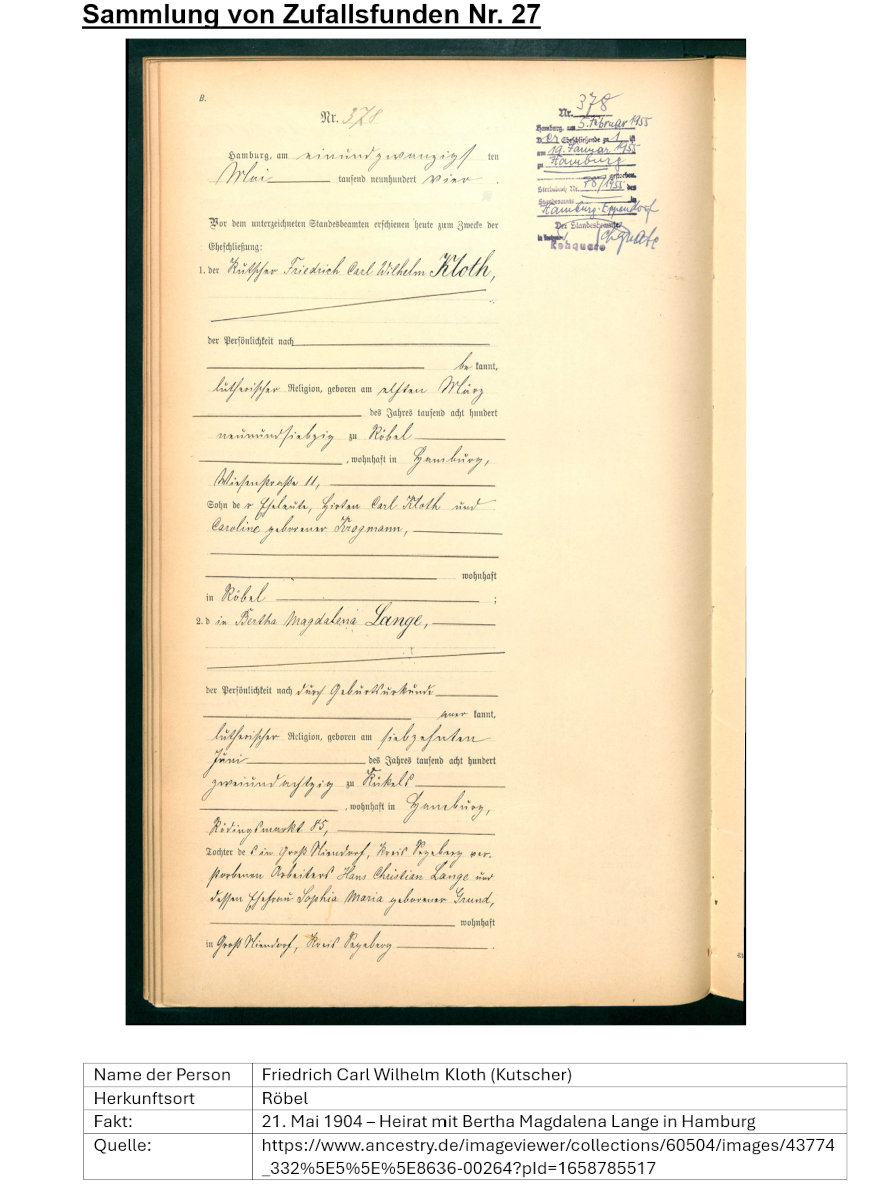 Sammlung von Zufallsfunden Nr. 27
B.
Nr. 378
Hamburg, am einundzwanzigsten
Mai tausend neunhundert vier.
Vor dem unterzeichneten Standesbeamten erschienen heute zum Zwecke der
Eheschließung:
1. der Kutscher Friedrich Carl Wilhelm Kloth,
der Persönlichkeit nach
bekannt,
lutherischer Religion, geboren am elften März
des Jahres tausend acht hundert
neunundsiebzig zu Röbel
, wohnhaft in Hamburg,
Wiesenstraße 11,
Sohn der Eheleute, Hirten Carl Kloth und
Caroline geborener Krogmann,
wohnhaft
in Röbel ;
2. die Bertha Magdalena Lange,
der Persönlichkeit nach durch Geburtsurkunde
aner kannt,
lutherischer Religion, geboren am siebzehnten
Juni des Jahres tausend acht hundert
zweiundachtzig zu Kükels
, wohnhaft in Hamburg,
Rödingsmarkt 85,
Tochter des in Groß Niendorf, Kreis Segeberg ver-
storbenen Arbeiters Hans Christian Lange und
dessen Ehefrau Sophia Maria geborener Grund,
wohnhaft
in Groß Niendorf, Kreis Segeberg .
Nr. 378
Hamburg, am 5. Februar 1955
Der Eheschließende zu 1 ist
am 19. Januar 1955
zu Hamburg
gestorben.
Sterbebuch Nr. 78/1955 des
Standesamts
Hamburg-Eppendorf
Der Standesbeamte
Name der Person Friedrich Carl Wilhelm Kloth (Kutscher)
Herkunftsort Röbel
Fakt: 21. Mai 1904 – Heirat mit Bertha Magdalena Lange in Hamburg
Quelle: https://www.ancestry.de/imageviewer/collections/60504/images/43774
_332%5E5%5E%5E8636-00264?pId=1658785517